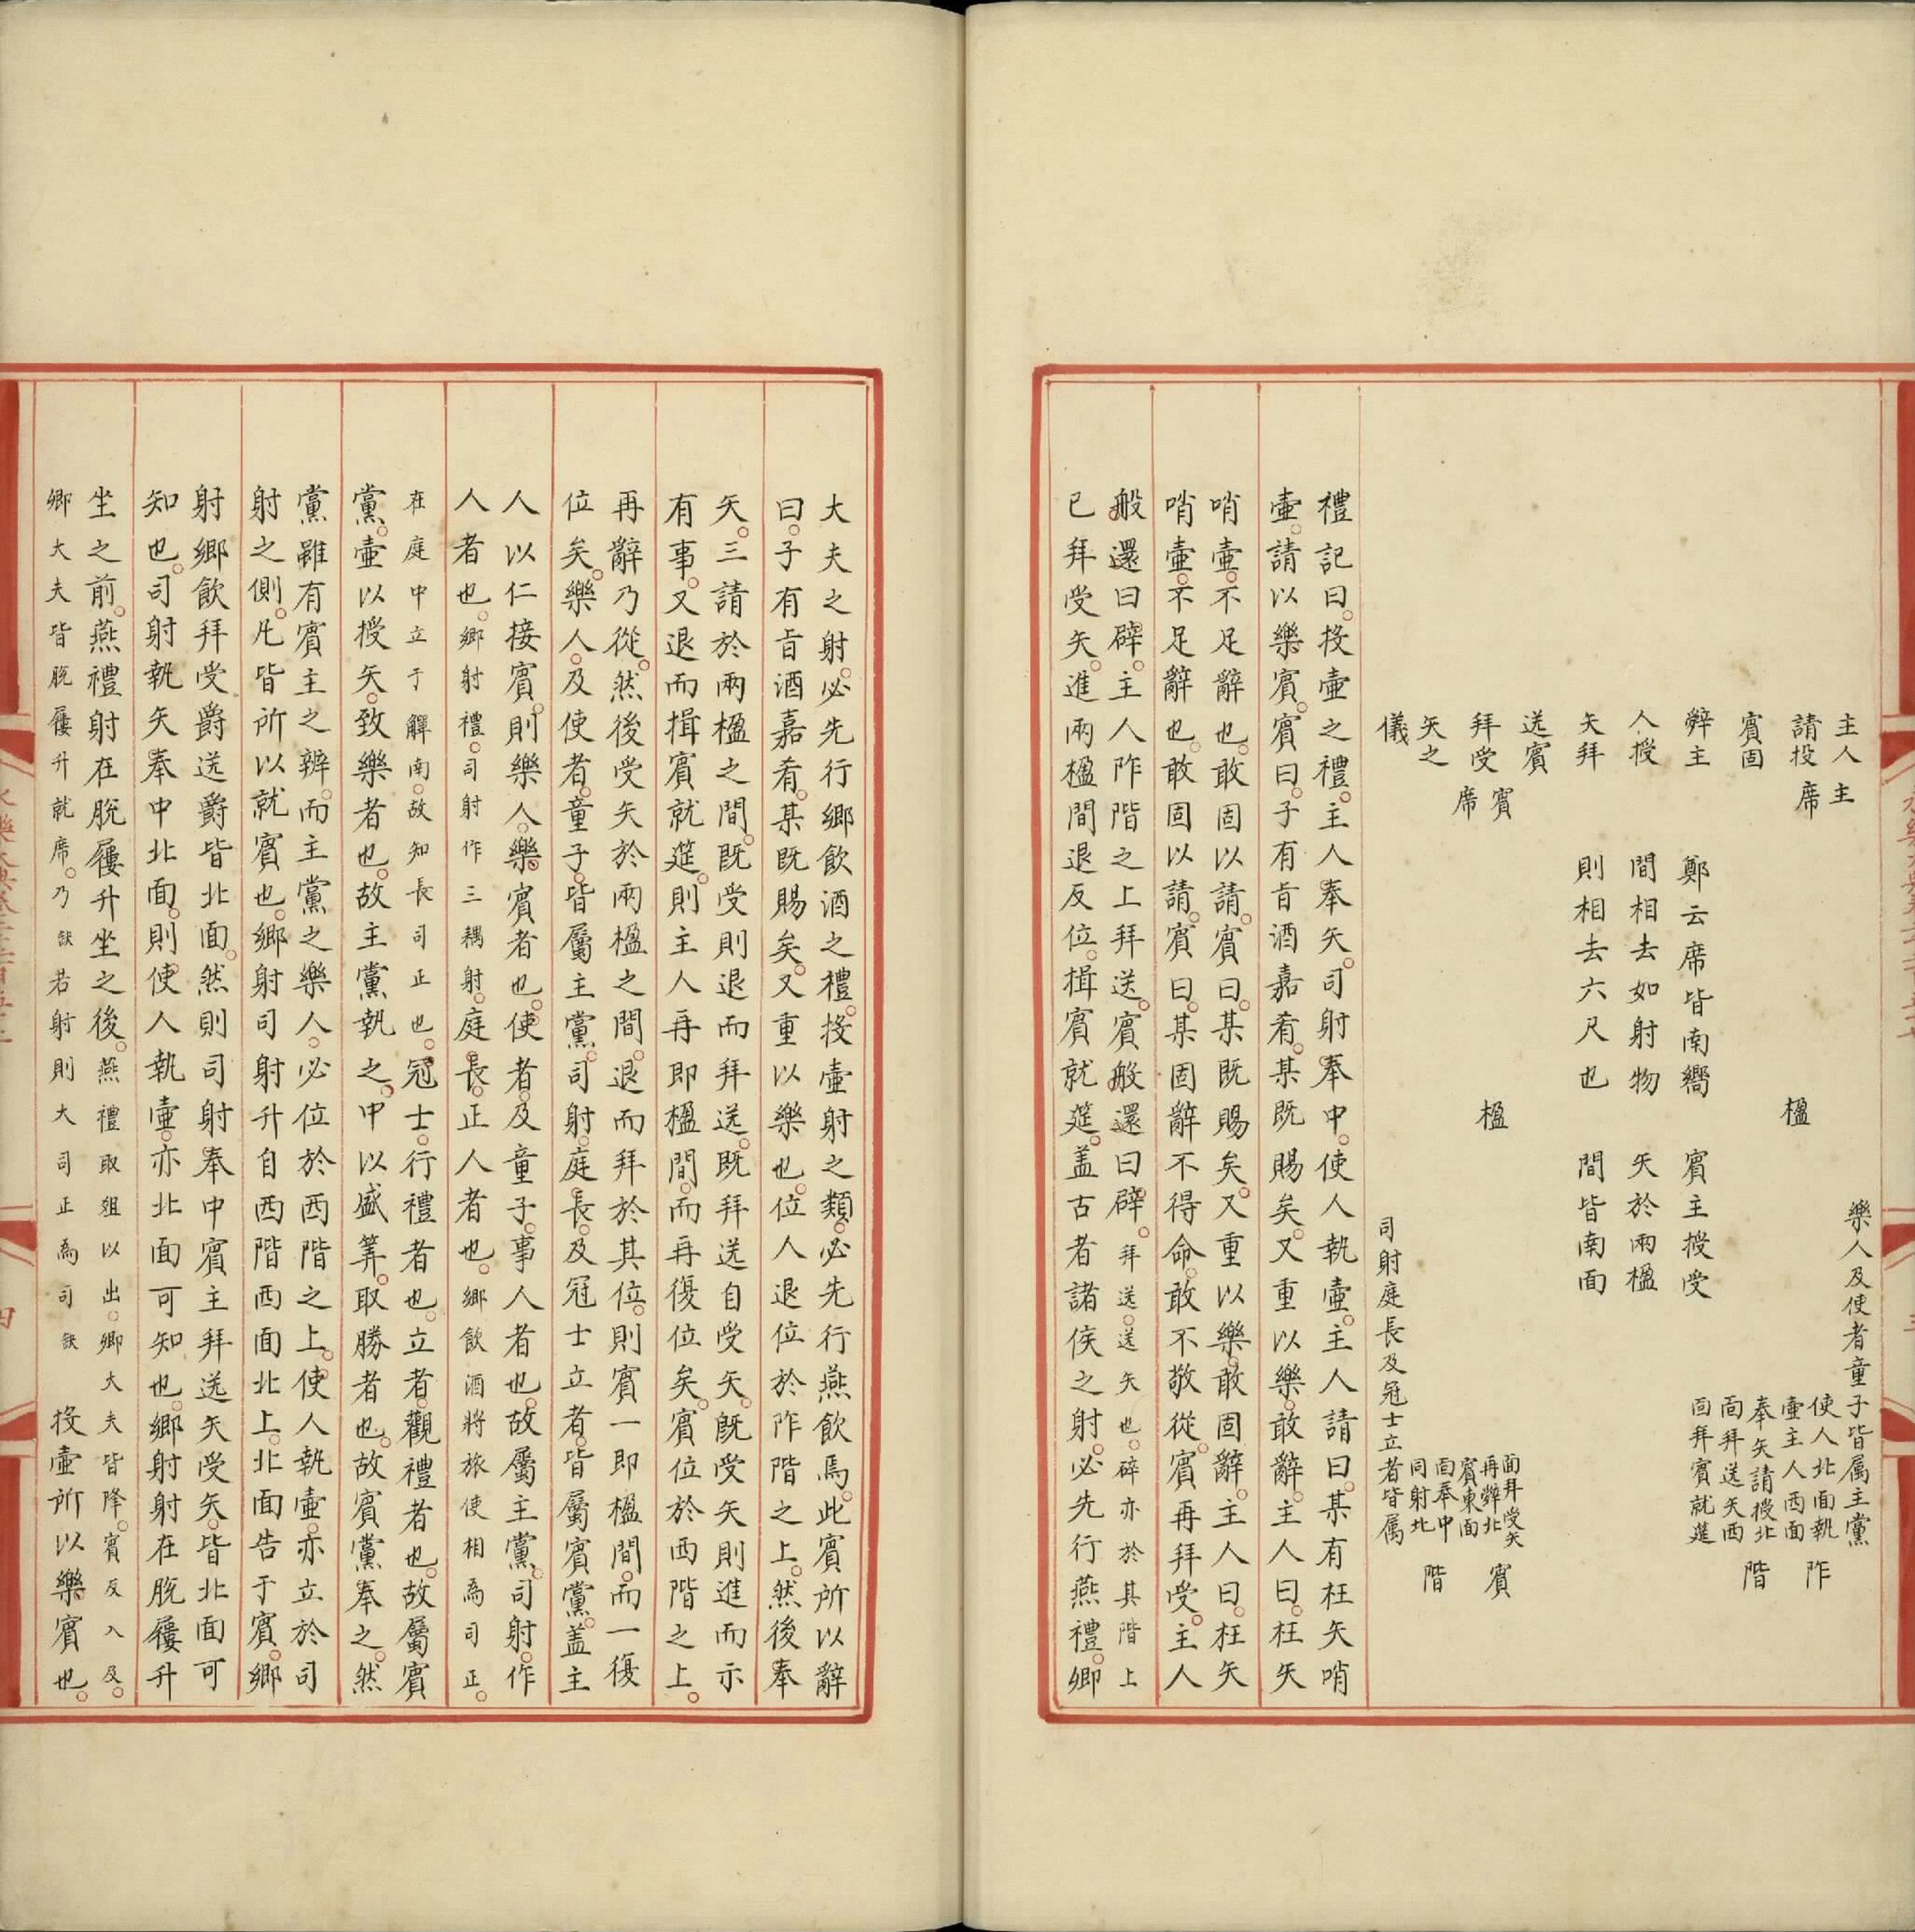 主人
請投
賓固
辤主
人授
矢拜
送賓
拜受
矢之
儀
主
席
賓
席
鄭云席皆南嚮
間相去如射物
則相去六尺也
楹
楹
賓主授受
矢於兩楹
間皆南面
樂人及使者童子皆属主黨
使人北面執
壷主人西面
奉矢請授北
面拜送矢西
面拜賓就莚
阼
階
面拜受矢
再辤北
賓東面
面奉中
司射北
賓
階
司射庭長及冠士立者皆属
禮記曰投壷之禮主人奉矢司射奉中使人執壷主人請曰某有枉矢哨
壷請以樂賓賓曰子有旨酒嘉肴某既賜矣又重以樂敢辭主人曰枉矢
哨壷不足辭也敢固以請賓曰某既賜矣又重以樂敢固辭主人曰枉矢
哨壷不足辭也敢固以請賓曰某固辭不得命敢不敬從賓再拜受主人
般還曰辟主人阼階之上拜送賓般還曰辟拜送送矢也辟亦於其階上
已拜受矢進兩楹間退反位揖賓就莚盖古者諸侯之射必先行燕禮卿
大夫之射必先行鄉飲酒之禮投壷射之類必先行燕飲焉此賓所以辭
曰子有旨酒嘉肴某既賜矣又重以樂也位人退位於阼階之上然後奉
矢三請於兩楹之間既受則退而拜送既拜送自受矢既受矢則進而示
有事又退而揖賓就莚則主人再即楹間而再復位矣賓位於西階之上
再辭乃從然後受矢於兩楹之間退而拜於其位則賓一即楹間而一復
位矣樂人及使者童子皆屬主黨司射庭長及冠士立者皆屬賓黨盖主
人以仁接賓則樂人樂賓者也使者及童子事人者也故屬主黨司射作
人者也鄉射禮司射作三耦射庭長正人者也鄉飲酒將旅使相為司正
在庭中立于觶南故知長司正也冠士行禮者也立者觀禮者也故屬賓
黨壷以授矢致樂者也故主黨執之中以盛筭取勝者也故賓黨奉之然
黨雖有賓主之辨而主黨之樂人必位於西階之上使人執壷亦立於司
射之側凡皆所以就賓也鄉射司射升自西階西面北上北面告于賓鄉
射鄉飲拜受爵送爵皆北面然則司射奉中賓主拜送矢受矢皆北面可
知也司射執矢奉中北面則使人執壷亦北面可知也鄉射射在脫屨升
坐之前燕禮射在脫屨升坐之後燕禮取俎以出卿大夫皆降賓反入及
卿大夫皆脫屨升就席乃缺若射則大司正為司缺投壷所以樂賓也